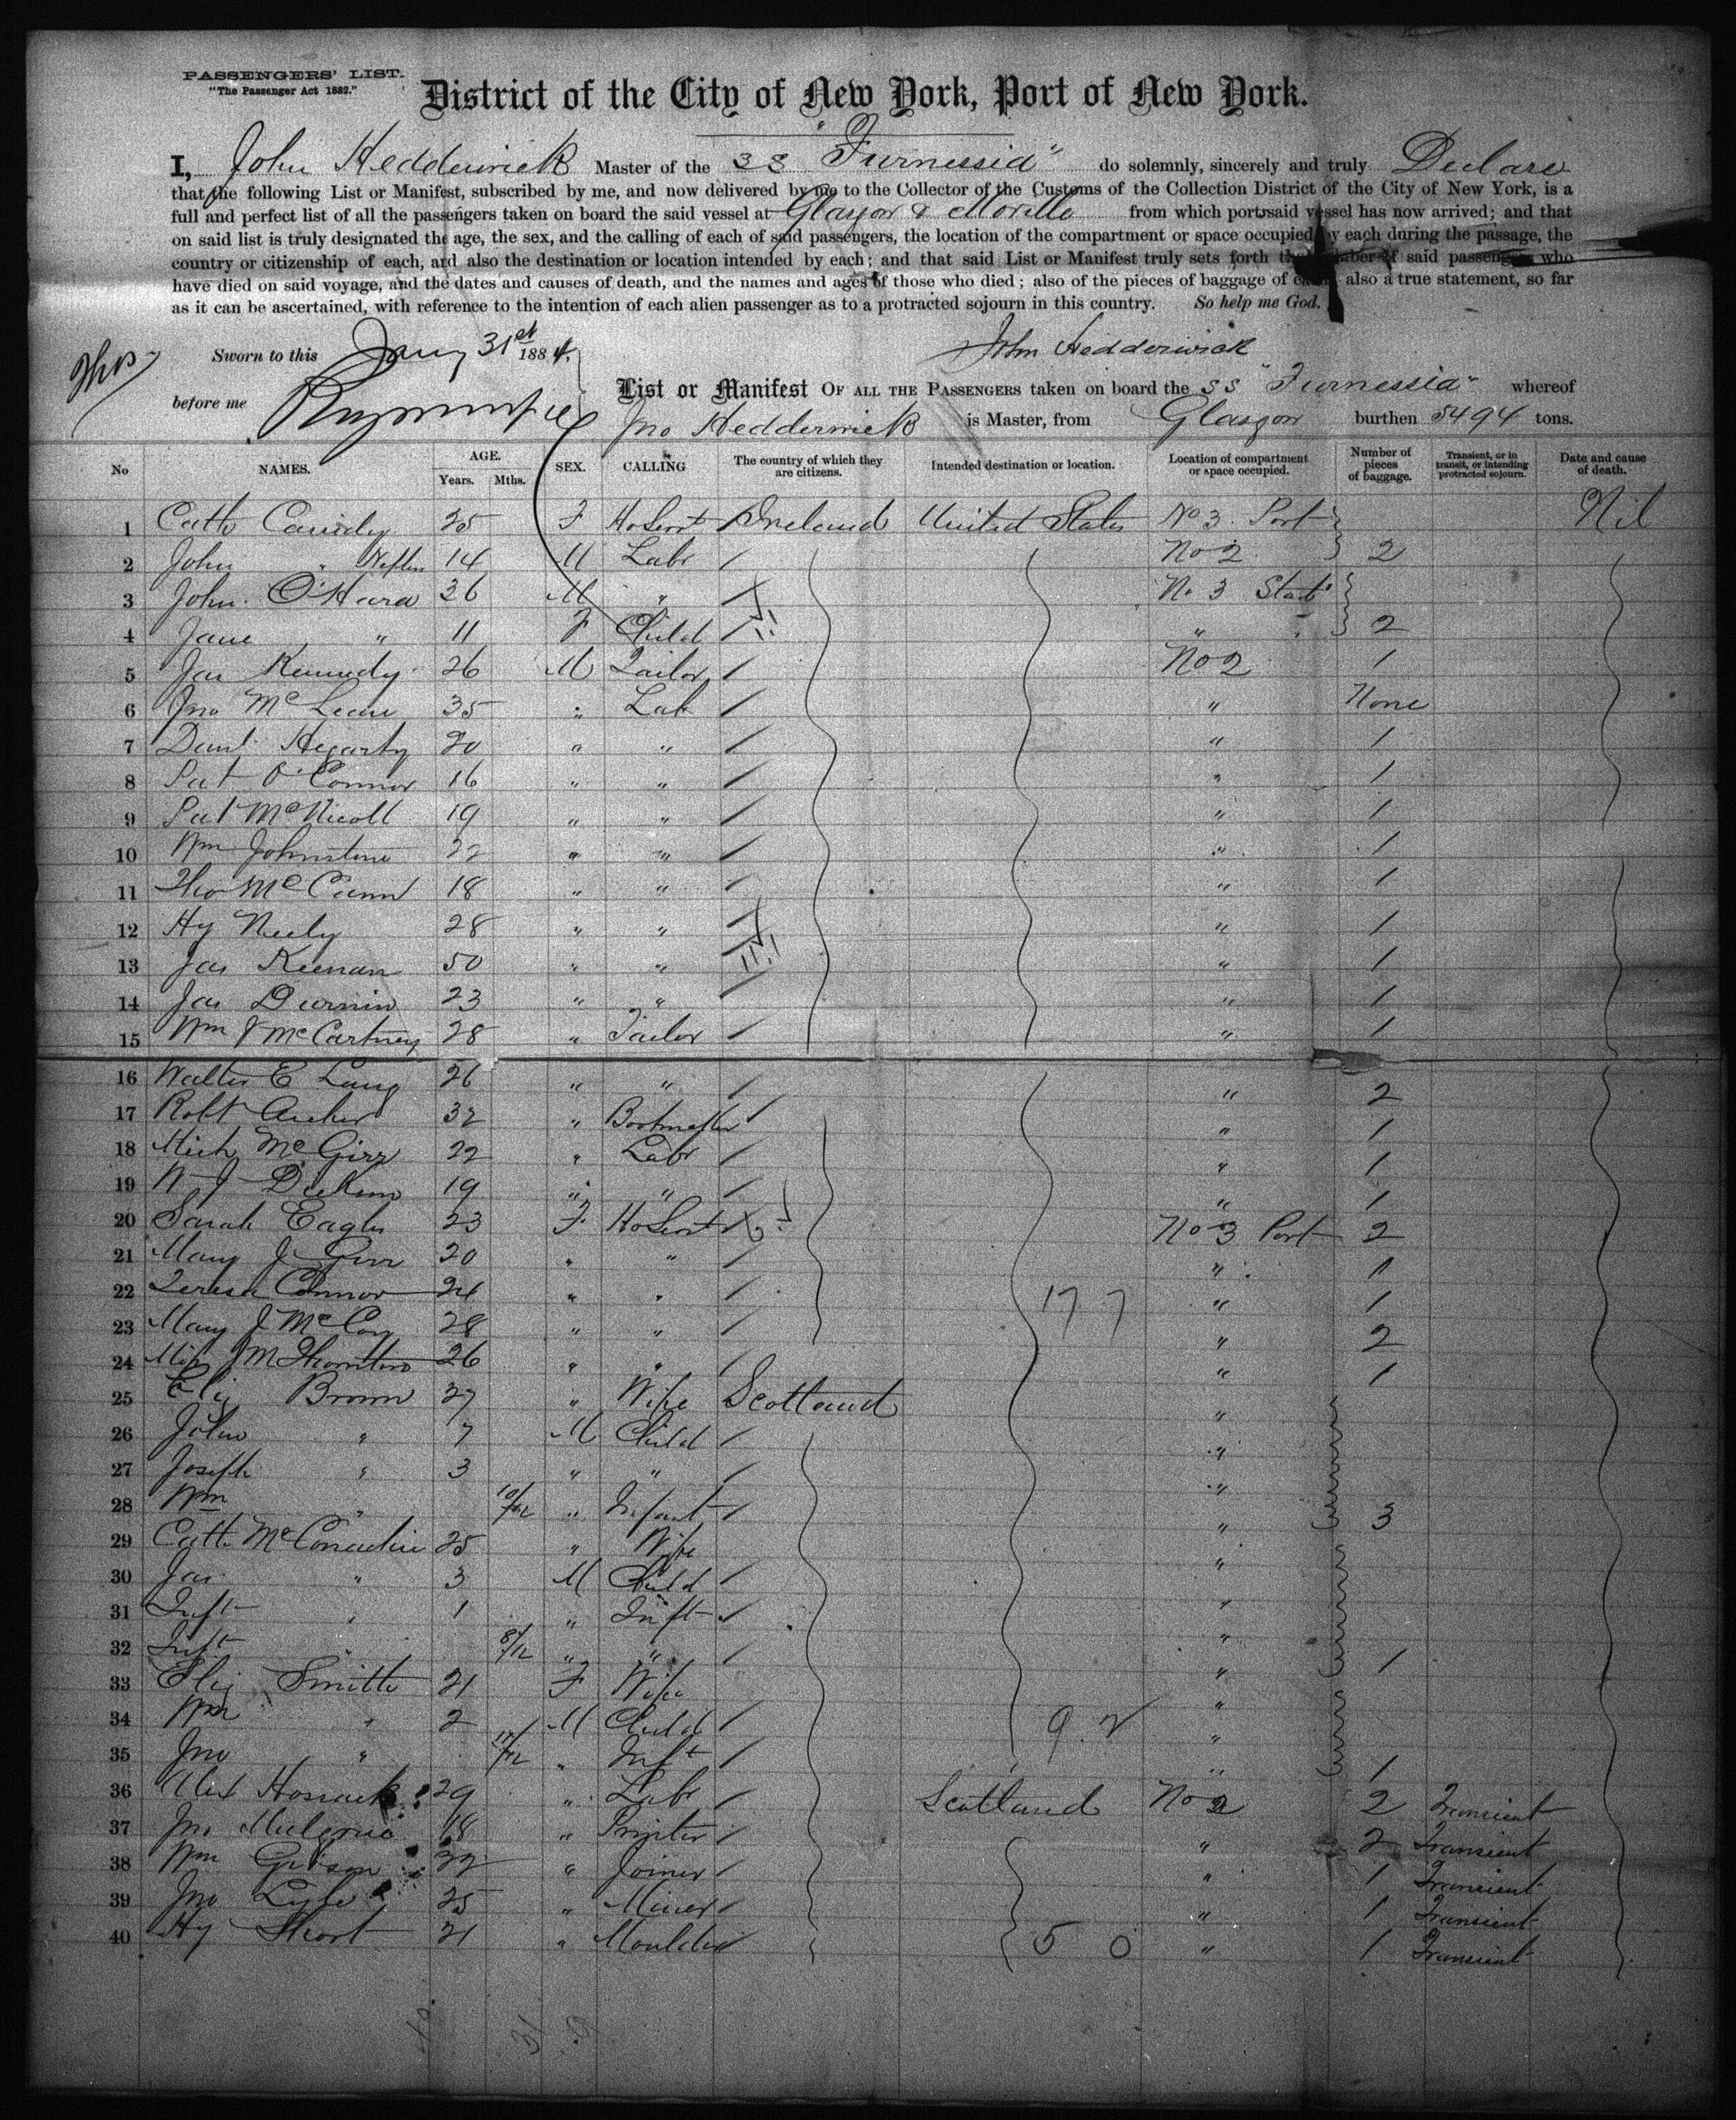 PASSENGERS' LIST.
"The Passenger Act 1882."
District of the City of New York, Port of New York.
I, John Hedderwick Master of the SS "Furnessia" do solemnly, sincerely and truly Declare
that the following List or Manifest, subscribed by me, and now delivered by me to the Collector of the Customs of the Collection District of the City of New York, is a
full and perfect list of all the passengers taken on board the said vessel at Glasgow & Moville from which port said vessel has now arrived; and that
on said list is truly designated the age, the sex, and the calling of each of said passengers, the location of the compartment or space occupied by each during the passage, the
country or citizenship of each, and also the destination or location intended by each; and that said List or Manifest truly sets forth the number of said passengers who
have died on said voyage, and the dates and causes of death, and the names and ages of those who died; also of the pieces of baggage of each also a true statement, so far
as it can be ascertained, with reference to the intention of each alien passenger as to a protracted sojourn in this country. So help me God.
Sworn to this Jany 31st 1884. John Hedderwick
before me
List or Manifest OF ALL THE PASSENGERS taken on board the SS "Furnessia" whereof
Jno Hedderwick is Master, from Glasgow burthen 5494 tons.
No NAMES. AGE. Years. Mths. SEX. CALLING The country of which they are citizens. Intended destination or location. Location of compartment or space occupied. Number of pieces of baggage. Transient, or in transit, or intending protracted sojourn. Date and cause of death.
1 Cath Cassidy 25 F HoServt Ireland United States No 3 Port Nil
2 John " 14 M Labr / No 2 2
3 John O'Hara 36 M " / No 3 Starb
4 Jane " 11 F Child / " " 2
5 Jas Kennedy 26 M Tailor / No 2 1
6 Jno McLean 35 " Lab / " None
7 Danl Hegarty 20 " " / " 1
8 Pat O'Connor 16 " " / " 1
9 Pat McNicoll 19 " " / " 1
10 Wm Johnstone 22 " " / " 1
11 Tho McCann 18 " " / " 1
12 Hy Neely 28 " " / " 1
13 Jas Keenan 50 " " / " 1
14 Jas Durnin 23 " " / " 1
15 Wm J McCartney 28 " Tailor / " 1
16 Walter E Lang 26 " " / " 2
17 Robt Archer 32 " Bootmaker / " 1
18 Mich McGirr 22 " Labr / " 1
19 W J Dickson 19 " " / " 1
20 Sarah Eagles 23 F HoServt / No 3 Port 2
21 Mary J Girr 20 " " / " 1
22 Teresa Connor 24 " " / 17 7 " 1
23 Mary J McCoy 28 " " / " 2
24 Miss J M Thornton 26 " " / " 1
25 Eliz Brown 27 " Wife Scotland "
26 John " 7 M Child / "
27 Joseph " 3 " " / "
28 Wm " 10/12 " Infant / " 3
29 Cath 25 " Wife "
30 Jas " 3 M Child / "
31 Inft " 1 " Inft / "
32 Inft " 8/12 " " / " 1
33 Eliz Smith 21 F Wife "
34 Wm " 2 M Child / 9 2 "
35 Jno " 11/12 " Inft / " 1
36 Alex Hossack 29 " Labr / Scotland No 2 2 Transient
37 Jno 18 " Printer / " 2 Transient
38 Wm Gibson 22 " Joiner / " 1 Transient
39 Jno Lyle 25 " Miner / " 1 Transient
40 Hy Short 21 " Moulder / 5 0 " 1 Transient